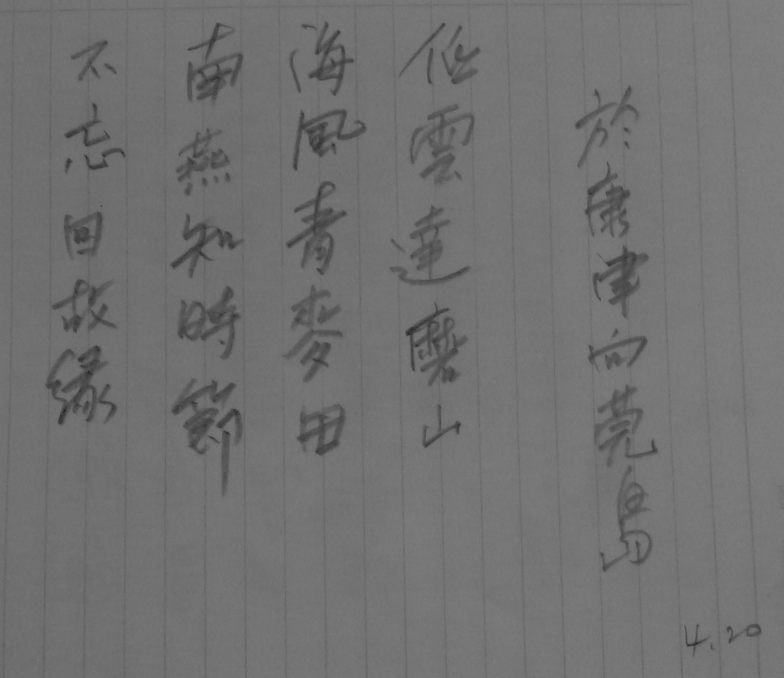 於康津向莞島
低雲達磨山
海風青麥田
南燕知時節
不忘回故緣
4.20